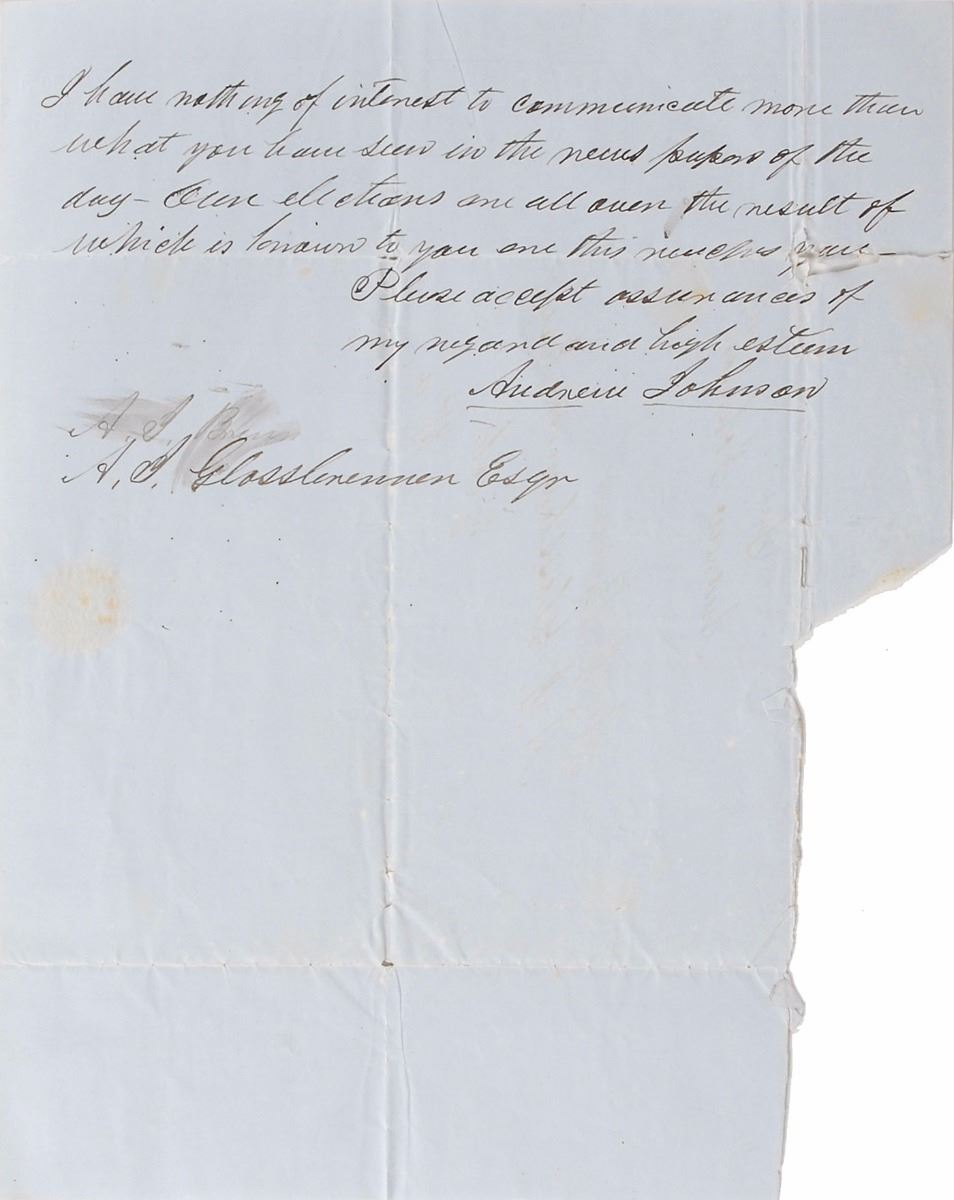 I have nothing of interest to communicate more than
what you have seen in the news papers of the
day – Our elections are all over the result of
which is known to you ere this reaches you –
Please accept assurances of
my regard and high esteem
Andrew Johnson
A. J.
A. J. Glossbrenner Esqr